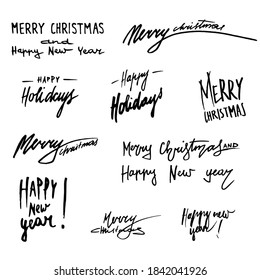 MERRY CHRISTMAS
and
Happy New Year
Merry christmas
HAPPY
Holidays
-HAPPY-
Holidays
MERRY
CHRISTMAS
Merry
christmas
Merry Christmas AND
Happy New year
HAPPY
New
year!
Merry
christmas
Happy new
year!
shutterstock
IMAGE ID: 1842041926
www.shutterstock.com